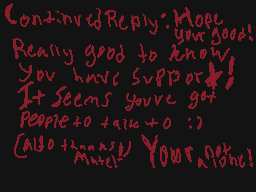 Continued Reply: Hope
your good!
Really good to know
you have support!
It seems youve got
People to talk to :)
(Also thanks
Mate!)
Your not
alone!